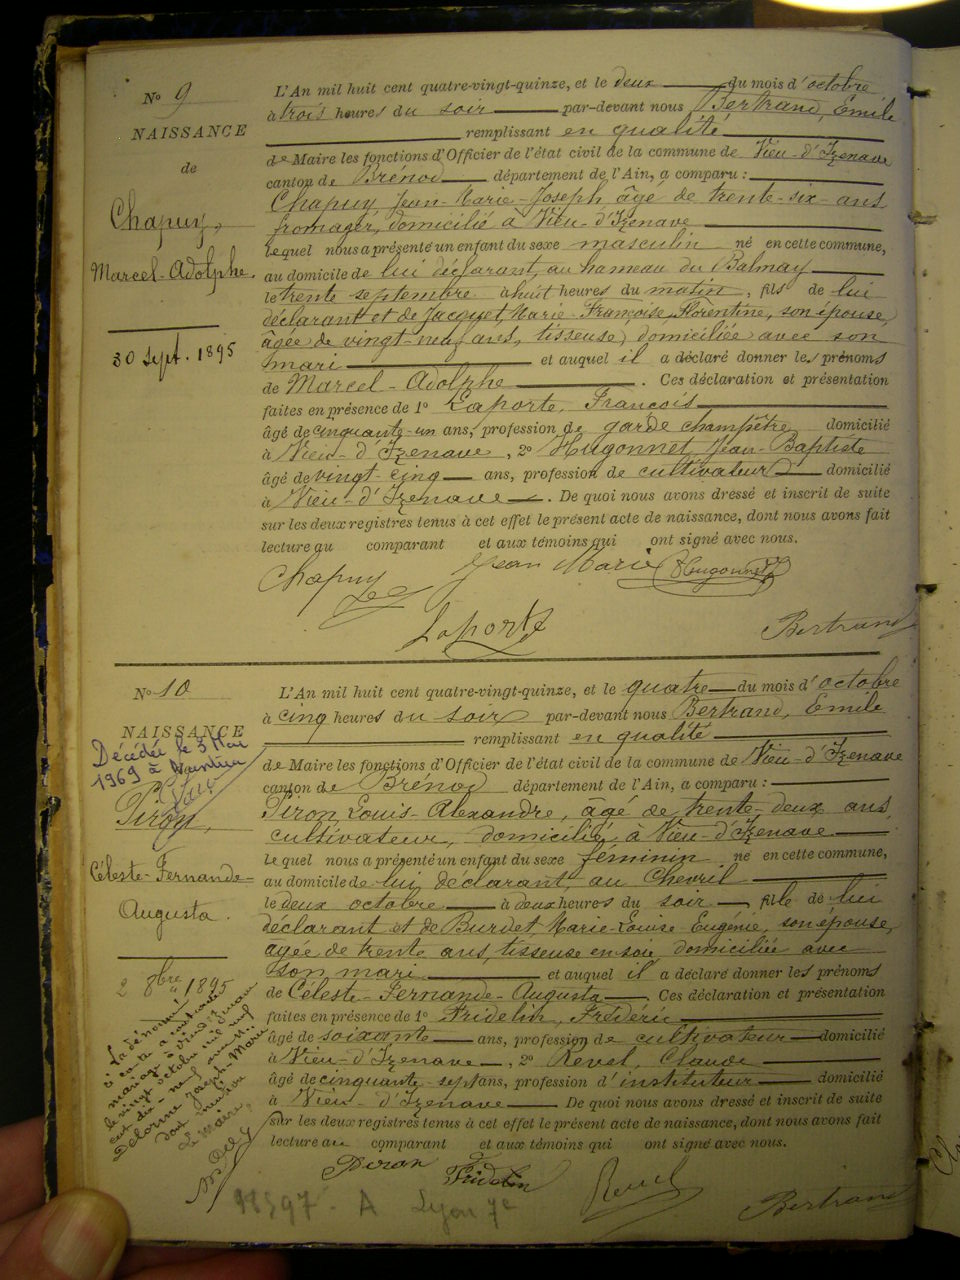 N° 9
NAISSANCE
de
Chapuy,
Marcel-Adolphe.
30 Sept. 1895
L'An mil huit cent quatre-vingt-quinze, et le deux du mois d'octobre
à trois heures du soir par-devant nous Bertrand, Emile
remplissant en qualité
de Maire les fonctions d'Officier de l'état civil de la commune de Vieu-d'Izenave
canton de Brénod département de l'Ain, a comparu :
Chapuy Jean-Marie-Joseph âgé de trente-six ans
fromager, domicilié à Vieu-d'Izenave
lequel nous a présenté un enfant du sexe masculin né en cette commune,
au domicile de lui déclarant, au hameau du Balmay
le trente septembre à huit heures du matin, fils de lui
déclarant et de Jacquet, Marie-Françoise, Florentine, son épouse,
âgée de vingt-neuf ans, tisseuse, domiciliée avec son
mari et auquel il a déclaré donner les prénoms
de Marcel-Adolphe. Ces déclaration et présentation
faites en présence de 1° Laporte, François
âgé de cinquante-un ans, profession de garde champêtre domicilié
à Vieu-d'Izenave, 2° Hugonnet, Jean-Baptiste
âgé de vingt-cinq ans, profession de cultivateur domicilié
à Vieu-d'Izenave. De quoi nous avons dressé et inscrit de suite
sur les deux registres tenus à cet effet le présent acte de naissance, dont nous avons fait
lecture au comparant et aux témoins qui ont signé avec nous.
Chapuy Jean Marie Hugonnet
Laporte Bertrand
N° 10
NAISSANCE
Décédée le 3 Mai
1969 à
Piron,
Céleste-Fernande-
Augusta.
2 8bre 1895
La dénommée
ci contre a contracté
mariage à
le vingt octobre mil neuf
cent dix-neuf avec M.
Delorme Joseph-Marie
dont mention
Le Maire,
L'An mil huit cent quatre-vingt-quinze, et le quatre du mois d'octobre
à cinq heures du soir par-devant nous Bertrand, Emile
remplissant en qualité
de Maire les fonctions d'Officier de l'état civil de la commune de Vieu-d'Izenave
canton de Brénod département de l'Ain, a comparu :
Piron Louis-Alexandre, âgé de trente-deux ans,
cultivateur, domicilié, à Vieu-d'Izenave
lequel nous a présenté un enfant du sexe féminin né en cette commune,
au domicile de lui déclarant, au Chevril
le deux octobre à deux heures du soir, fille de lui
déclarant et de Burdet Marie-Louise-Eugénie, son épouse,
agée de trente ans, tisseuse en soie, domiciliée avec
son mari et auquel il a déclaré donner les prénoms
de Céleste-Fernande-Augusta. Ces déclaration et présentation
faites en présence de 1° Fridelin, Fréderic
âgé de soixante ans, profession de cultivateur domicilié
à Vieu-d'Izenave, 2° Revel, Claude
âgé de cinquante-sept ans, profession d'instituteur domicilié
à Vieu-d'Izenave De quoi nous avons dressé et inscrit de suite
sur les deux registres tenus à cet effet le présent acte de naissance, dont nous avons fait
lecture au comparant et aux témoins qui ont signé avec nous.
Piron Fridelin Revel Bertrand
A Lyon 7e